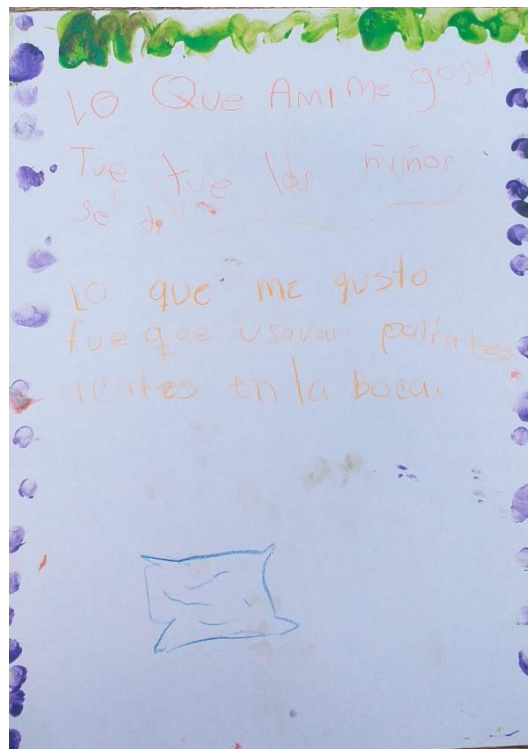 LO Que Ami me gost
Tue tue los ñiños
se d
LO que me gusto
fue que usavan paliates
en la boca.